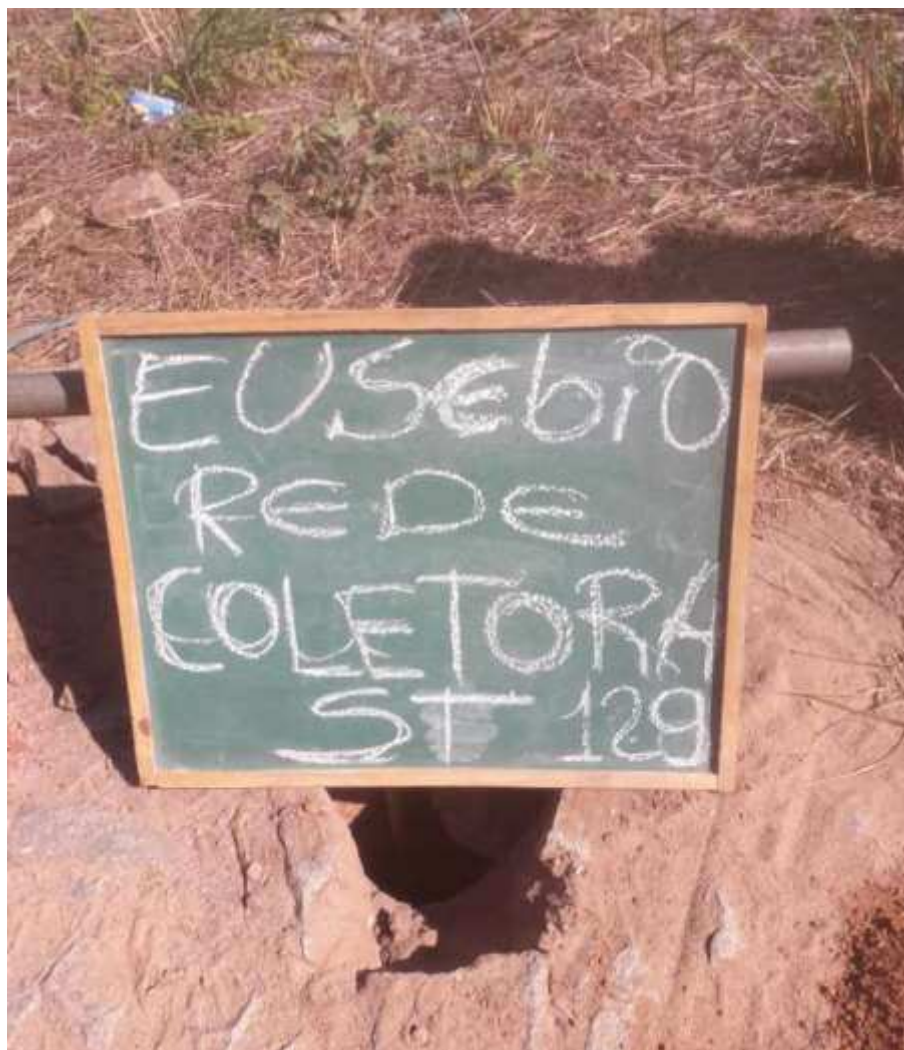 EUSEbiO
REDE
COLETORA
ST 129